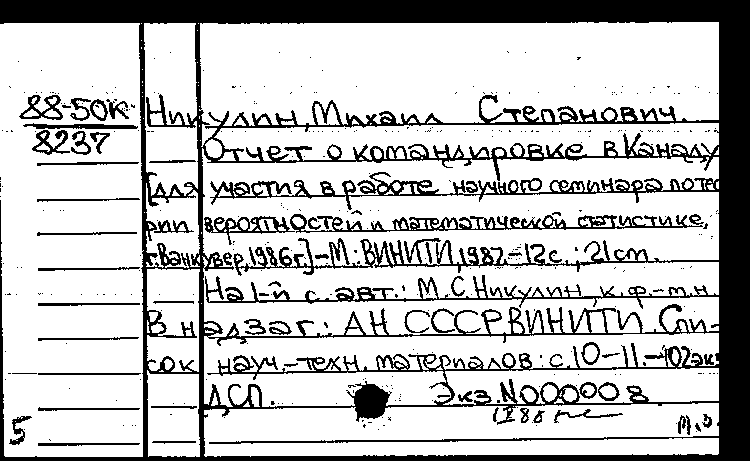 88-50К Никулин, Михаил Степанович.
8237 Отчет о командировке в Канаду
[для участия в работе научного семинара по тео
рии вероятностей и математической статистике,
г. Ванкувер, 1986г.]–М.: ВИНИТИ, 1987.–12с.; 21см.
На 1-й с. авт.: М.С. Никулин, к.ф.-м.н.
В надзаг.: АН СССР, ВИНИТИ. Спи-
сок науч.-техн. материалов: с.10–11.–102экз
ДСП. Экз. N000008.
5